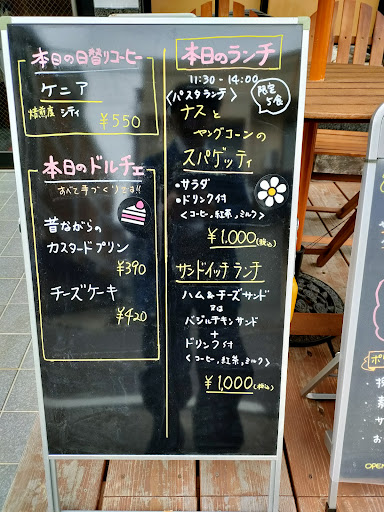 本日の日替りコーヒー
ケニア
焙煎度 シティ
¥550
本日のドルチェ
すべて手づくりです!!
昔ながらの
カスタードプリン
¥390
チーズケーキ
¥420
本日のランチ
11:30-14:00
<パスタランチ>
限定
5食
ナスと
ヤングコーンの
スパゲッティ
・サラダ
・ドリンク付
<コーヒー,紅茶,ミルク>
¥1,000(税込)
サンドイッチランチ
ハム&チーズサンド
又は
バジルチキンサンド
+
ドリンク付
<コーヒー,紅茶,ミルク>
¥1,000(税込)
OPEN